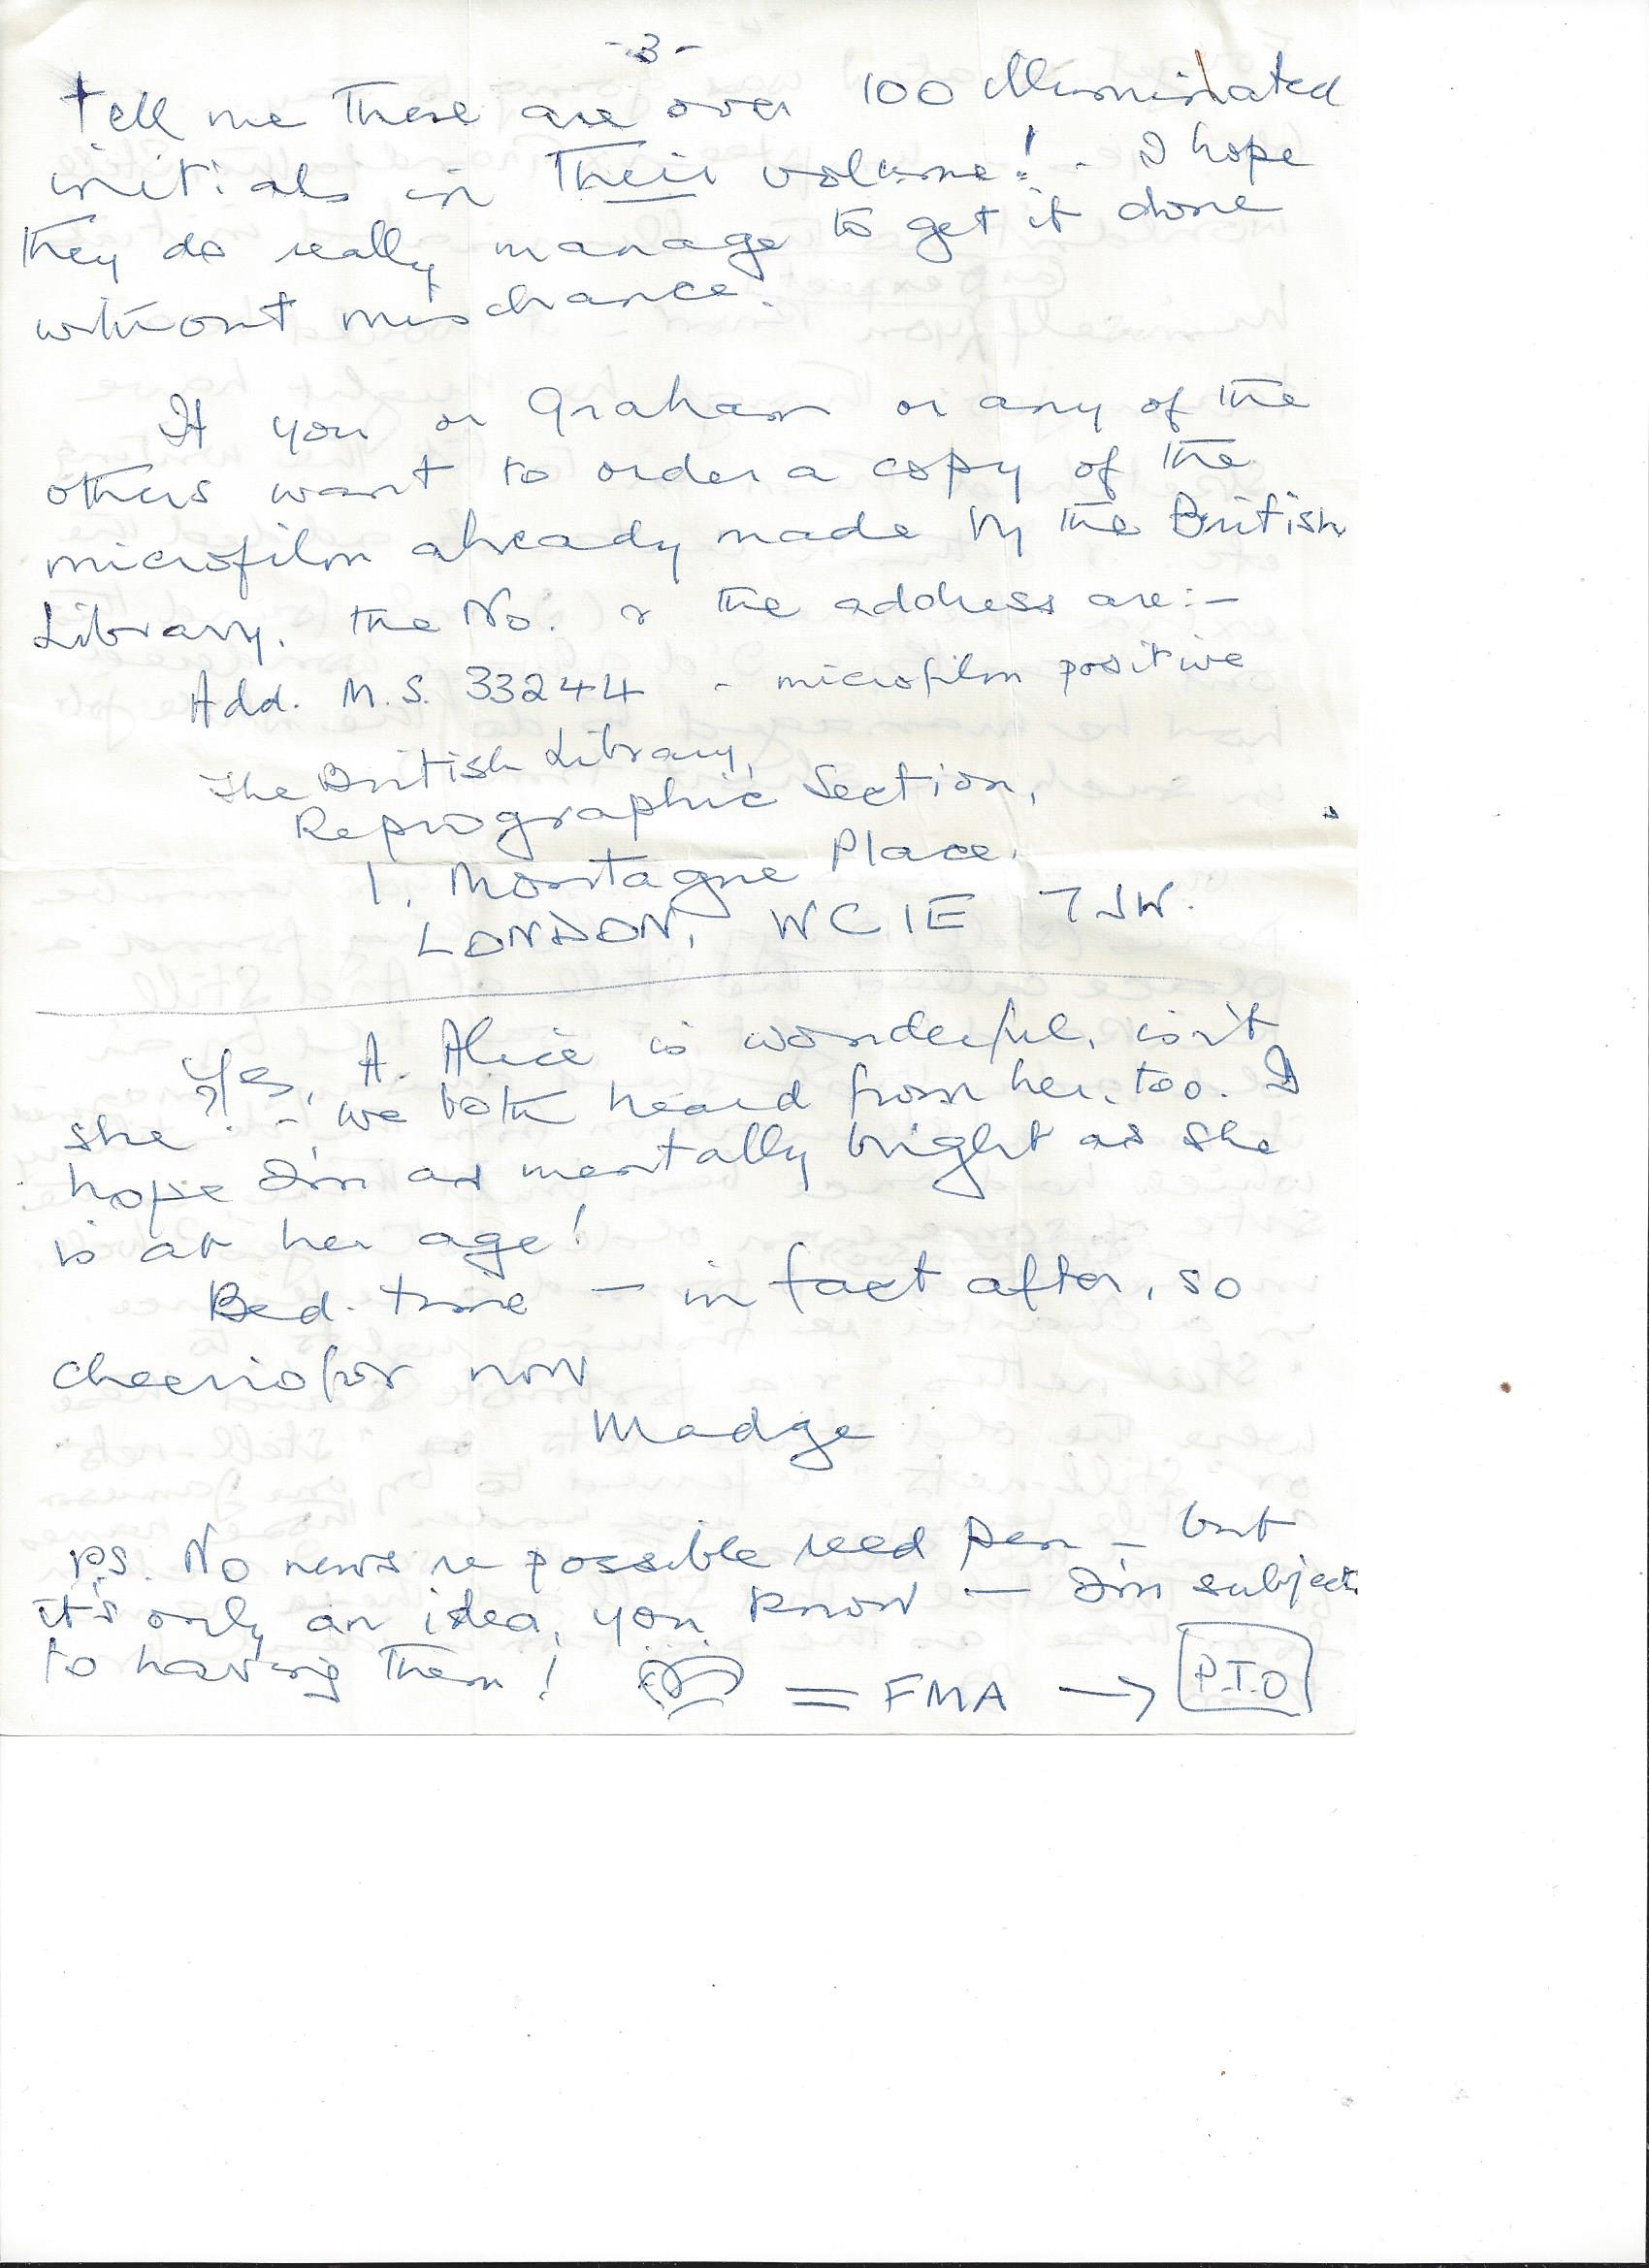 -3-
tell me there are over 100 illuminated
initials in their volume! - I hope
they do really manage to get it done
without mischance.
If you or Graham or any of the
others want to order a copy of the
microfilm already made by the British
Library, the No. & the address are:-
Add. M.S. 33244 - microfilm positive
The British Library,
Reprographic Section,
1, Montague Place,
LONDON, WC1E 7JW.
Yes, A. Alice is wonderful, isn't
she? - we both heard from her, too. I
hope I'm as mentally bright as she
is at her age!
Bed-time - in fact after, so
cheerio for now
Madge
P.S. No news re possible reed pen - but
it's only an idea, you know - I'm subject
to having them!
= FMA → P.T.O